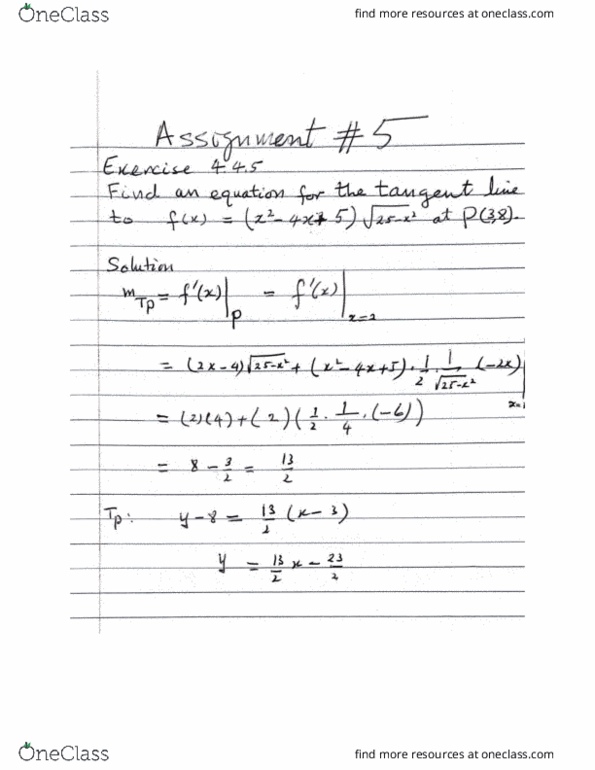 OneClass
find more resources at oneclass.com
Assignment #5
Exercise 4.4.5
Find an equation for the tangent line
to f(x) = (x²-4x+5)√25-x² at P(3,8).
Solution
m_Tp = f'(x)|_P = f'(x)|_x=3
= (2x-4)√25-x² + (x²-4x+5)·1/2·1/√25-x²·(-2x)|_x=
= (2)(4)+(2)(1/2·1/4·(-6))
= 8 - 3/2 = 13/2
Tp: y-8 = 13/2 (x-3)
y = 13/2 x - 23/2
OneClass
find more resources at oneclass.com